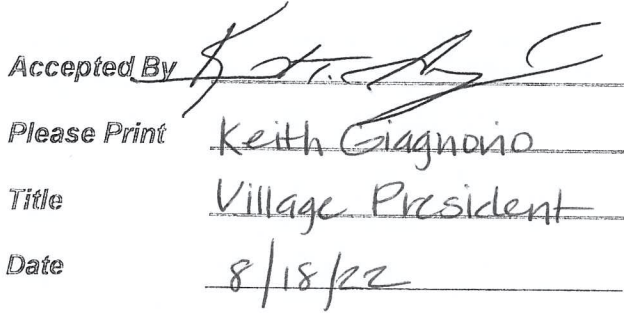 Accepted By
Please Print Keith Giagnorio
Title Village President
Date 8/18/22